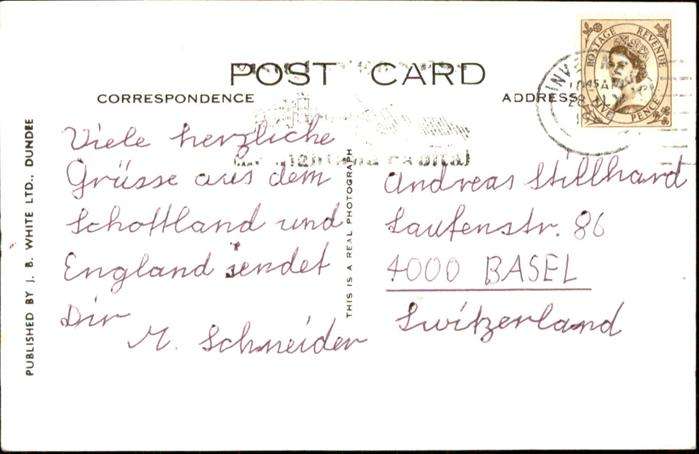 POST CARD
CORRESPONDENCE
ADDRESS
POSTAGE REVENUE
FIVE PENCE
Viele herzliche
Grüsse aus dem
Schottland und
England sendet
Dir
M. Schneider
Andreas Stillhard
Laufenstr. 86
4000 BASEL
Switzerland
THIS IS A REAL PHOTOGRAPH
PUBLISHED BY J. B. WHITE LTD., DUNDEE